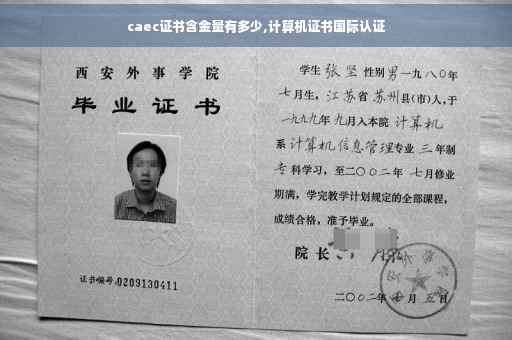 caec证书含金量有多少,计算机证书国际认证
西安外事学院
毕业证书
证书编号:0209130411
学生 张坚 性别 男 一九八〇年
七月生，江苏省 苏州县(市)人,于
一九九九年 九月入本院 计算机
系 计算机信息管理专业 三 年制
专科学习，至二〇〇二年 七月修业
期满，学完教学计划规定的全部课程，
成绩合格，准予毕业。
院长
二〇〇二年 月 五日